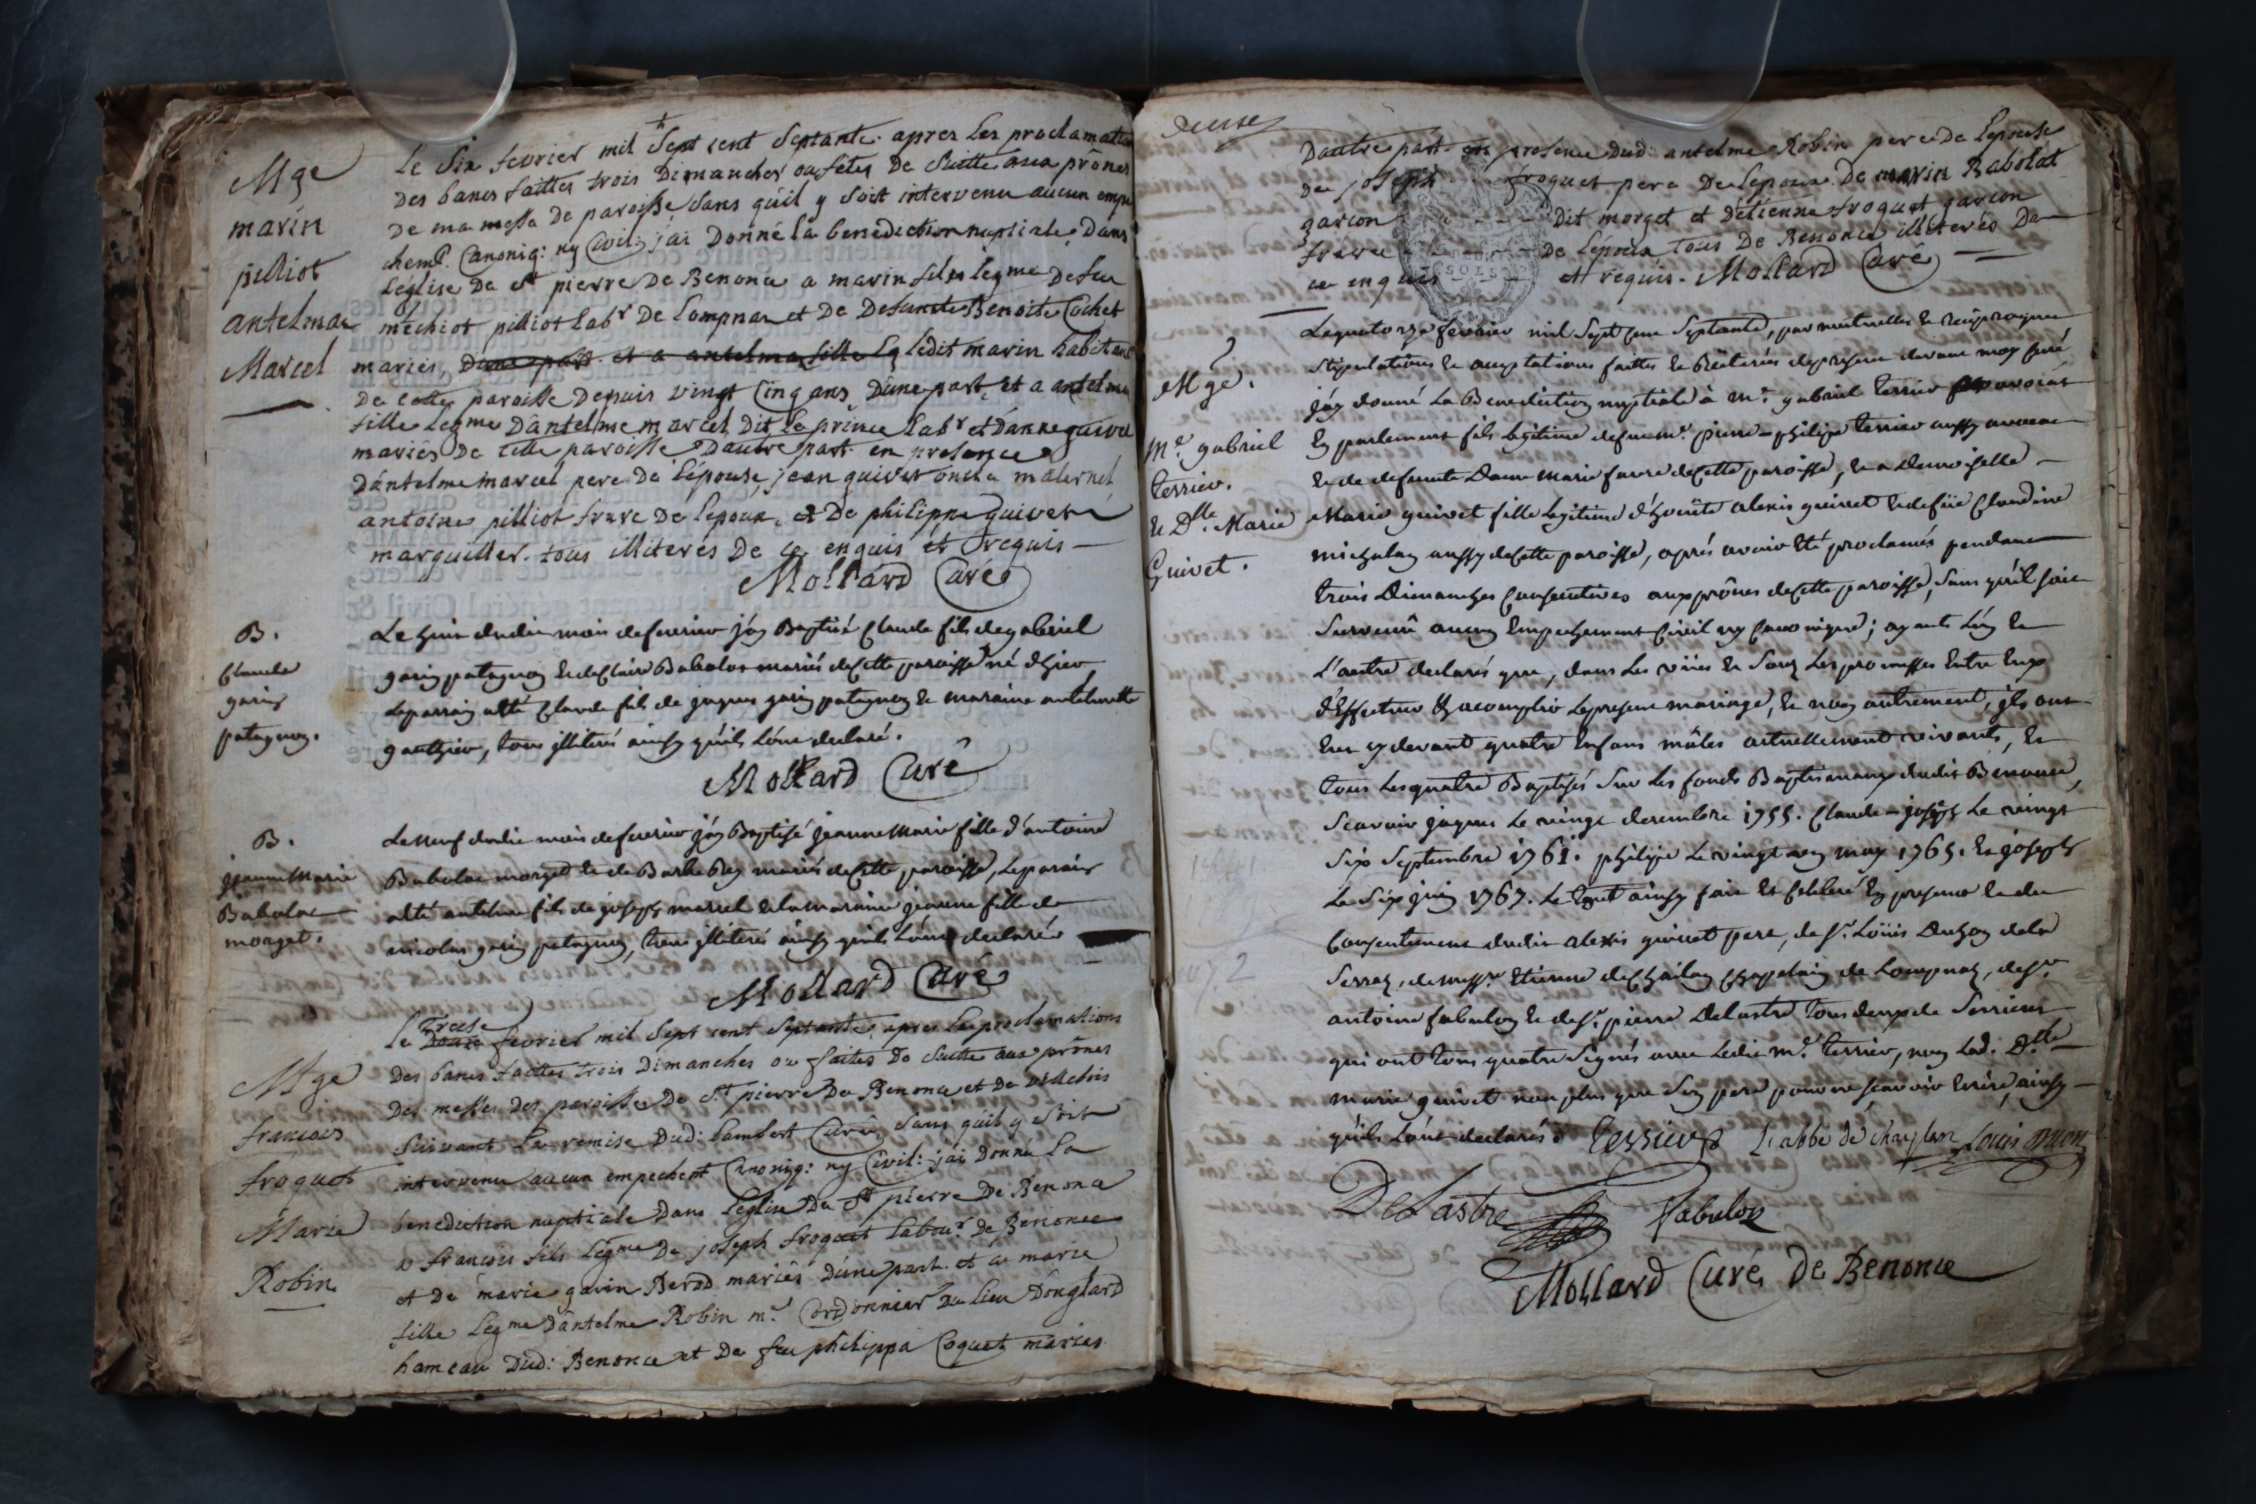 Mge
marin
pilliot
antelmaz
Marcel
le Six fevrier mil Sept cent Septante. apres les proclamations
des bancs faittes trois Dimanches ou fetes De Suitte aux prônes
De ma messe De paroisse Sans qu'il y Soit intervenu aucun empe
chemt. Canoniq: ny Civil; jai Donné la benediction nuptiale Dans
Leglise De st pierre De Benonce a marin fils legme De feu
michiot pilliot labr De Lompnaz et De Defuncte Benoite Cochet
mariés, D'une part et a antelmaz fille Lg ledit marin habitant
De cette paroisse Depuis vingt Cinq ans D'une part, et a antelmaz
fille Legme D'antelme marcel Dit Le prince Labr et D'anne guivet
mariés De cette paroisse D'autre part en presence
D'antelme marcel pere De L'épouse, jean guivet oncle maternel
antoine pilliot frere De lepoux, et De philippe Guivet
marguillier. tous illiteres De ce enquis et requis
Mollard Curé
B.
Claude
garin
patagnon.
Le huit dudit mois de fevrier j'ay Baptisé Claude fils de gabriel
garin patagnon et de Claire Babolat mariés de cette paroisse né d'hier
le parrain a été Claude fils de jaques garin patagnon et maraine antelmette
gauthier, tous illiterés ainsy qu'ils l'ont declaré.
Mollard Curé
B.
jeanne Marie
Babolat
morget.
Le neuf dudit mois de fevrier j'ay Baptisé jeanne Marie fille d'antoine
Babolat morget et de Barbe Rey mariés de cette paroisse, le parain
a été antelme fils de joseph marcel et la maraine jeanne fille de
nicolas garin patagnon, tous illiterés ainsy qu'ils l'ont declaré
Mollard Curé
Mge
francois
froquet
Marie
Robin
Treise
le Douze fevrier mil Sept cent Septante, apres les proclamations
des bancs faittes trois Dimanches ou faites De Suitte aux prônes
Des messes Des paroisses De st pierre De Benonce et De
Suivant La remise Dud: Lambert Curé, Sans quil y Soit
intervenu aucun empechemt Canoniq: ny Civil: jai Donné La
benediction nuptiale Dans L'eglise De st pierre De Benonce
a francois fils Legme De joseph froquet Labour De Benonce
et De marie garin Berod mariés D'une part. et a marie
fille Legme D'antelme Robin mr Cordonnier Du lieu D'onglard
hameau Dud: Benonce et De feu philippa Coquet mariés
D'autre part en presence Dud: antelme Robin pere De Lepouse
de joseph froquet pere De Lepoux De marin Babolat
garcon Dit morget et D'etienne froquet garcon
frere De Lepoux Tous De Benonce illiterés De
ce enquis et requis. Mollard Curé
Mge.
Mr. gabriel
Terrier.
et Dlle. Marie
Guivet.
Le quatorze fevrier mil Sept cent Septante, par mutuelles et reciproques
Stipulations et acceptations faittes et reiterées de present devant moy curé
j'ay donné La Benediction nuptiale à Mr. gabriel Terrier avocat
En parlement fils legitime de feu mr. pierre-philipe Terrier aussy avocat
et de defunte Dame Marie favre de cette paroisse, et a Demoiselle
Marie guivet fille legitime d'honête alexis guivet et de füe Claudine
michalan aussy de cette paroisse, après avoir été proclamés pendant
trois Dimanches Consecutives aux prônes de cette paroisse, Sans qu'il soit
Survenû aucun Empechement Civil ny Canonique; ayants L'un et
L'autre declarés que, dans Les vües et Sous Les promesses Entre Eux
d'Effectuer et acomplir Le present mariage, et non autrement, ils ont
Eus cy devant quatre Enfans mâles actuellement vivants, et
tous Les quatre Baptisés Sur Les fonds Baptismaux dudit Benonce,
Scavoir jaques Le vingt decembre 1755. Claude-joseph Le vingt
Six Septembre 1761. philipe Le vingt un may 1765. Et joseph
Le Six juin 1767. Le tout ainsy fait et Celebré En presence et du
Consentement dudit alexis guivet pere, de sr. Loüis Duhon dela
Serraz, de messre Etienne de Chailan Chapelain de Lompnaz, de sr.
antoine fabulon et de sr. pierre Delastre tous deux de Serrieres
qui ont tous quatre Signés avec Ledit mr. Terrier, non Lad. Dlle
marie guivet non plus que Son pere pour ne scavoir Ecrire, ainsy
qu'ils L'ont declarés. Terrier L'abbé de chaylan Louis Duon
DeLastre fabulon
Mollard Curé De Benonce